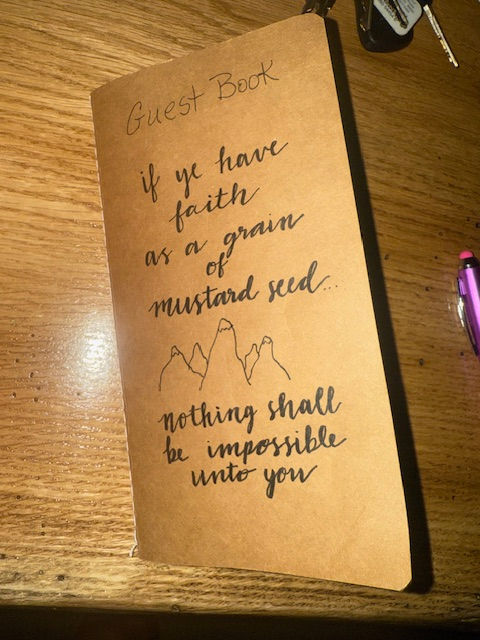 Guest Book
if ye have
faith
as a grain
of
mustard seed...
nothing shall
be impossible
unto you